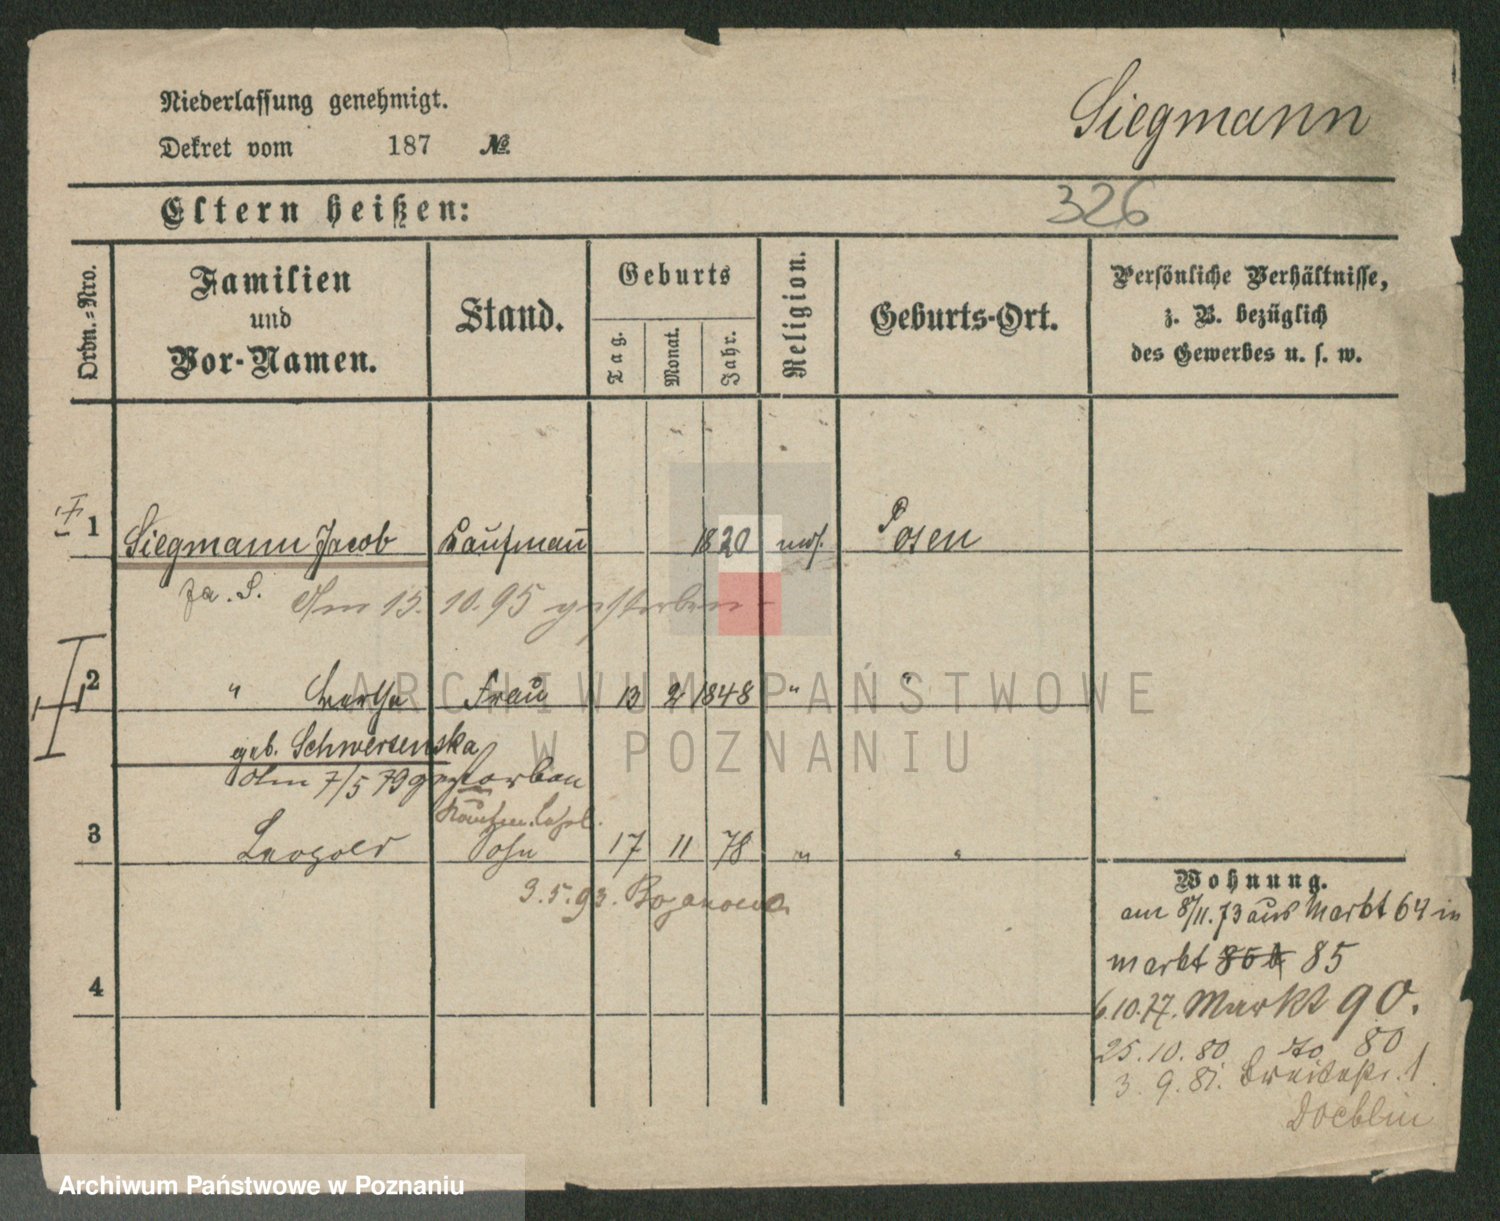 Niederlassung genehmigt.
Siegmann
Dekret vom 187 №
Eltern heißen:
326
Ordn.-Nro.
Familien
und
Vor-Namen.
Stand.
Geburts
Tag.
Monat.
Jahr.
Religion.
Geburts-Ort.
Persönliche Verhältnisse,
z. B. bezüglich
des Gewerbes u. s. w.
1 Siegmann Jacob Kaufmann 1820 mos. Posen
Ja. S. Am 15. 10. 95 gestorben
2 " Bertha Frau 13 2 1848 " "
geb. Schwersenska
Am 7/5 79 gestorben
Kaufm. Lehrl.
3 Leopold Sohn 17 11 78 " "
3. 5. 93. Bojanowo
4
Wohnung.
am 8/11. 73 aus Markt 64 in
Markt 85
6.10.77. Markt 90.
25. 10. 80 do 80
3. 9. 81. Breitestr. 1.
ARCHIWUM PAŃSTWOWE
W POZNANIU
Archiwum Państwowe w Poznaniu